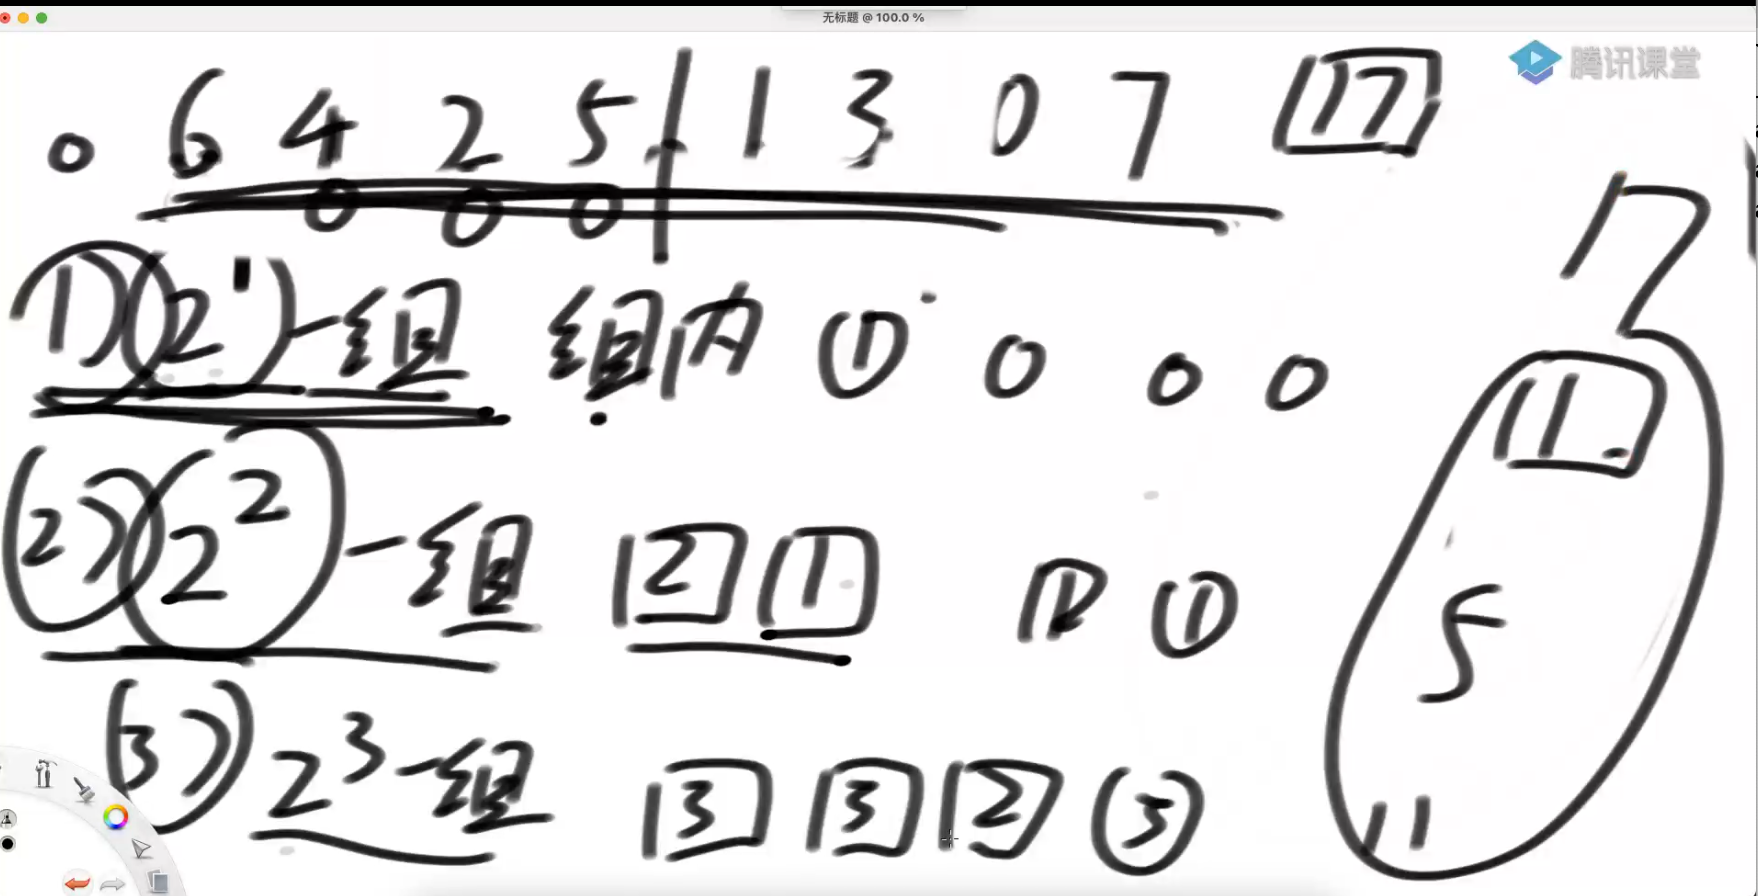 无标题 @ 100.0 %
腾讯课堂
0 6 4 2 5 | 1 3 0 7 17
0 0 0
7
1) (2¹) 一组 组内 ① 0 0 0
11
(2) 2² 一组 2 1 ① ①
5
(3) 2³ 一组 3 3 2 ③
11